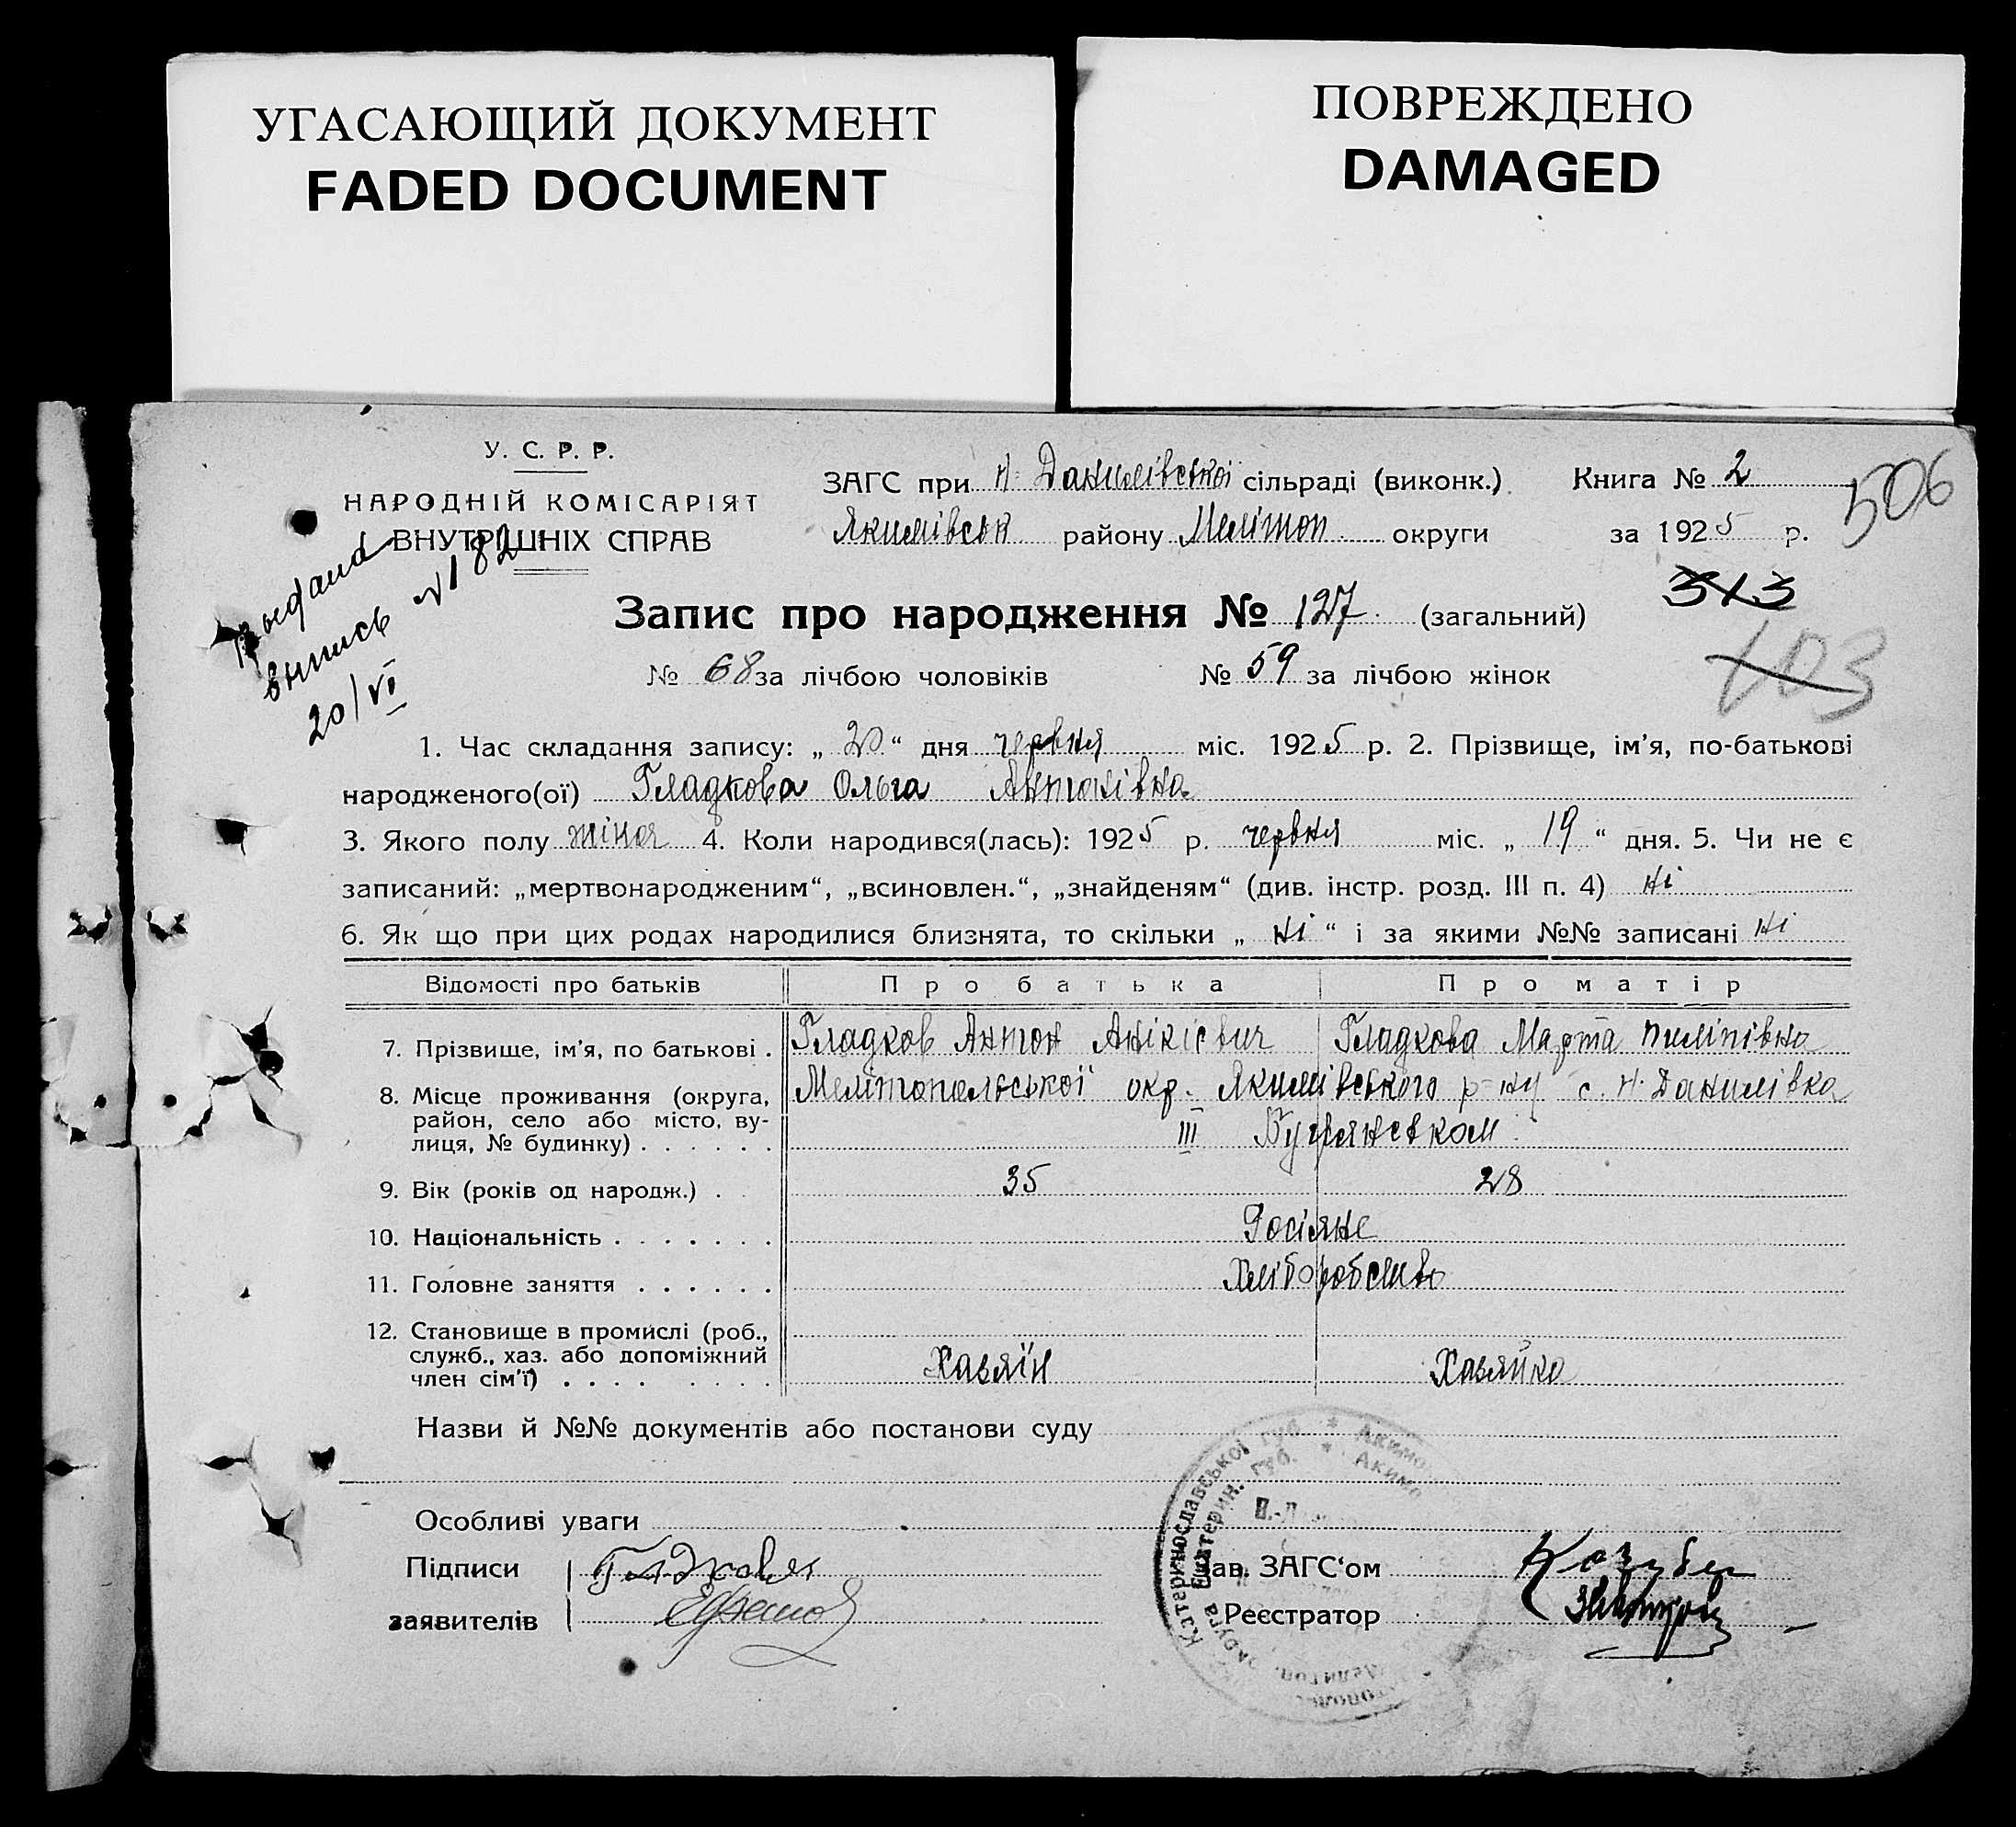 УГАСАЮЩИЙ ДОКУМЕНТ
FADED DOCUMENT
ПОВРЕЖДЕНО
DAMAGED
У. С. Р. Р.
НАРОДНІЙ КОМІСАРІЯТ
ВНУТРІШНІХ СПРАВ
ЗАГС при Н. Данилівській сільраді (виконк.)
Якимівськ району Мелітоп. округи
Книга № 2
за 1925 р.
506
313
103
выдана
выпись №182
20/VI
Запис про народження № 127. (загальний)
№ 68 за лічбою чоловіків № 59 за лічбою жінок
1. Час складання запису: „ 20 “ дня червня міс. 1925 р. 2. Прізвище, ім'я, по-батькові
народженого(ої) Гладкова Ольга Антонівна
3. Якого полу жіноч 4. Коли народився(лась): 1925 р. червня міс. „ 19 “ дня. 5. Чи не є
записаний: „мертвонародженим“, „всиновлен.“, „знайденям“ (див. інстр. розд. III п. 4) ні
6. Як що при цих родах народилися близнята, то скільки „ ні “ і за якими №№ записані ні
Відомості про батьків Про батька Про матір
7. Прізвище, ім'я, по батькові . Гладков Антон Анікієвич Гладкова Марта Пиліпівна
8. Місце проживання (округа, район, село або місто, вулиця, № будинку) . . . . . . Мелітопольської окр. Якимівського р-ну с. Н. Данилівка
III
9. Вік (років од народж.) . 35 28
10. Національність . . . . . . . Росіяне
11. Головне заняття . . . . . . Хліборобство
12. Становище в промислі (роб.,
служб., хаз. або допоміжний
член сім'ї) . . . . . . . . Хазяїн Хазяйка
Назви й №№ документів або постанови суду
Особливі уваги
Підписи Гладков
заявителів
Зав. ЗАГС‘ом
Реєстратор
Катеринославської губ. * Акимо
Екатерин. губ. * Акимо